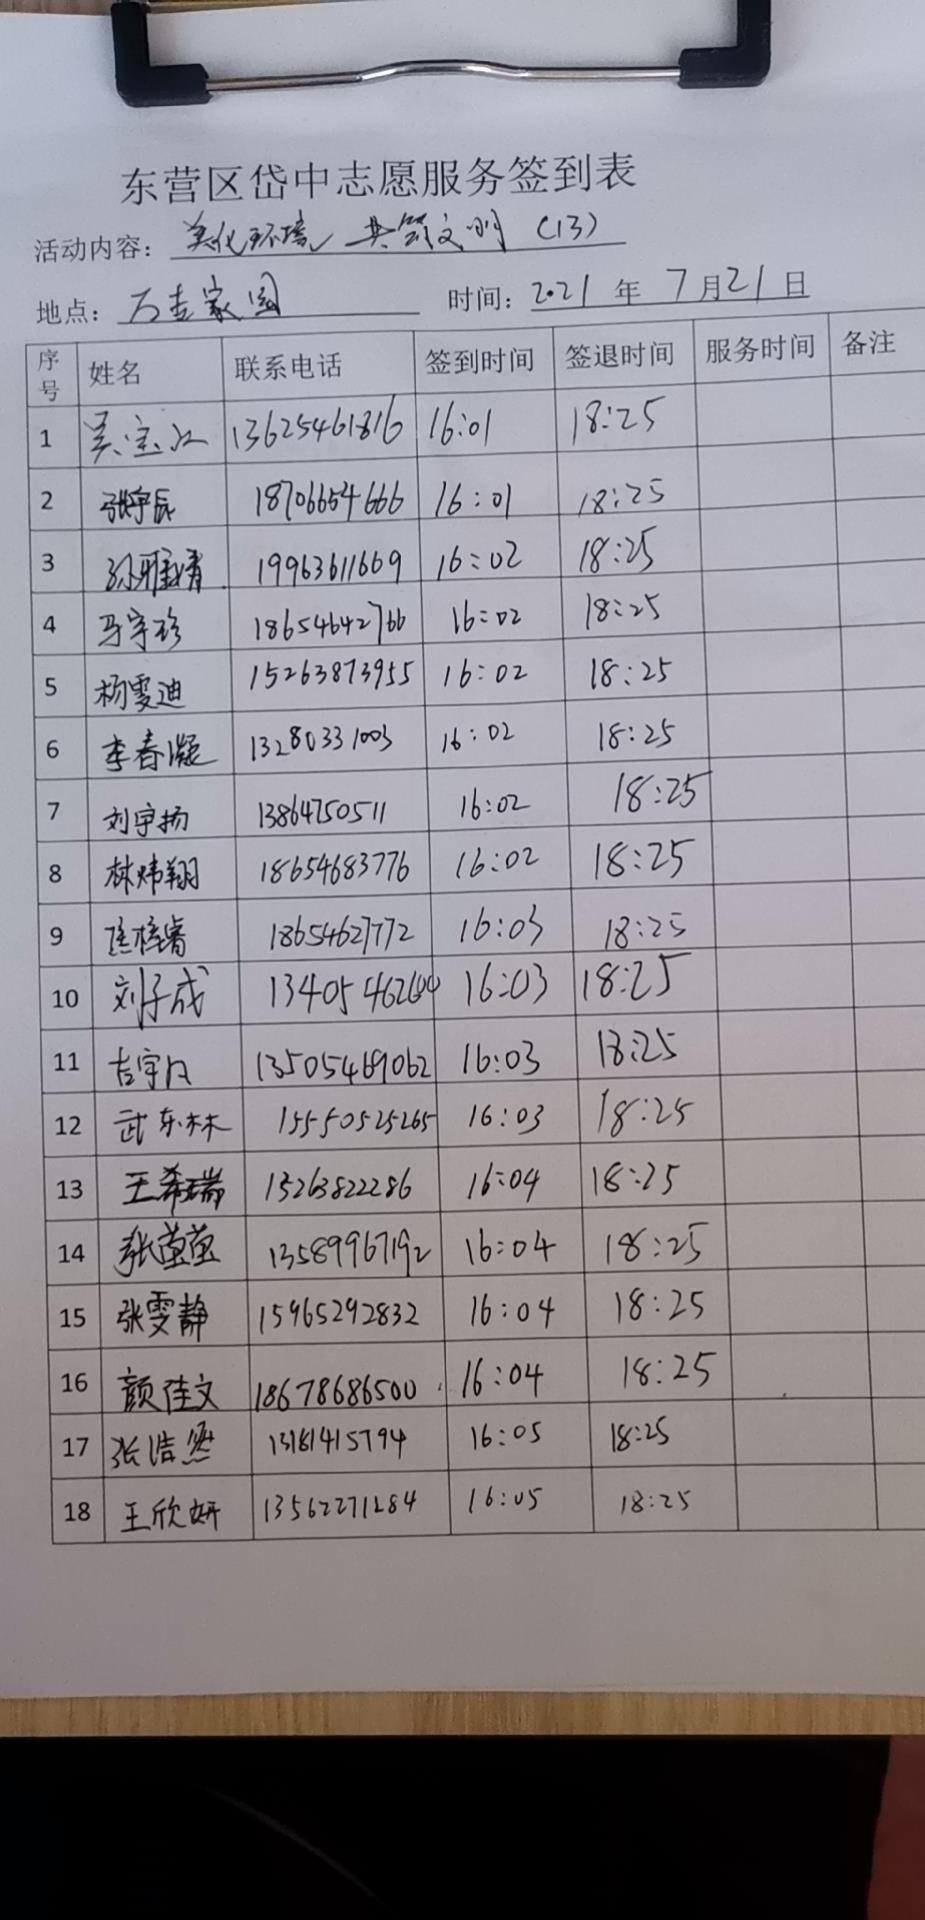 东营区岱中志愿服务签到表
活动内容：美化环境 共筑文明（13）
地点：万吉家园 时间：2021年7月21日
序号 姓名 联系电话 签到时间 签退时间 服务时间 备注
1 吴宝江 13625461816 16:01 18:25
2 张宇辰 18706654666 16:01 18:25
3 孙雅清 19963611669 16:02 18:25
4 马宇珍 18654642766 16:02 18:25
5 杨雯迪 15263873955 16:02 18:25
6 李春凝 13280331003 16:02 18:25
7 刘宇扬 13864750511 16:02 18:25
8 林炜翔 18654683776 16:02 18:25
9 18654627772 16:03 18:25
10 刘子成 16:03 18:25
11 吉宇 13505469062 16:03 18:25
12 武东林 15550525265 16:03 18:25
13 王希瑞 15263822286 16:04 18:25
14 张萱萱 13589967192 16:04 18:25
15 张雯静 15965292832 16:04 18:25
16 颜佳文 18678686500 16:04 18:25
17 张浩然 13181415794 16:05 18:25
18 王欣妍 13562271284 16:05 18:25